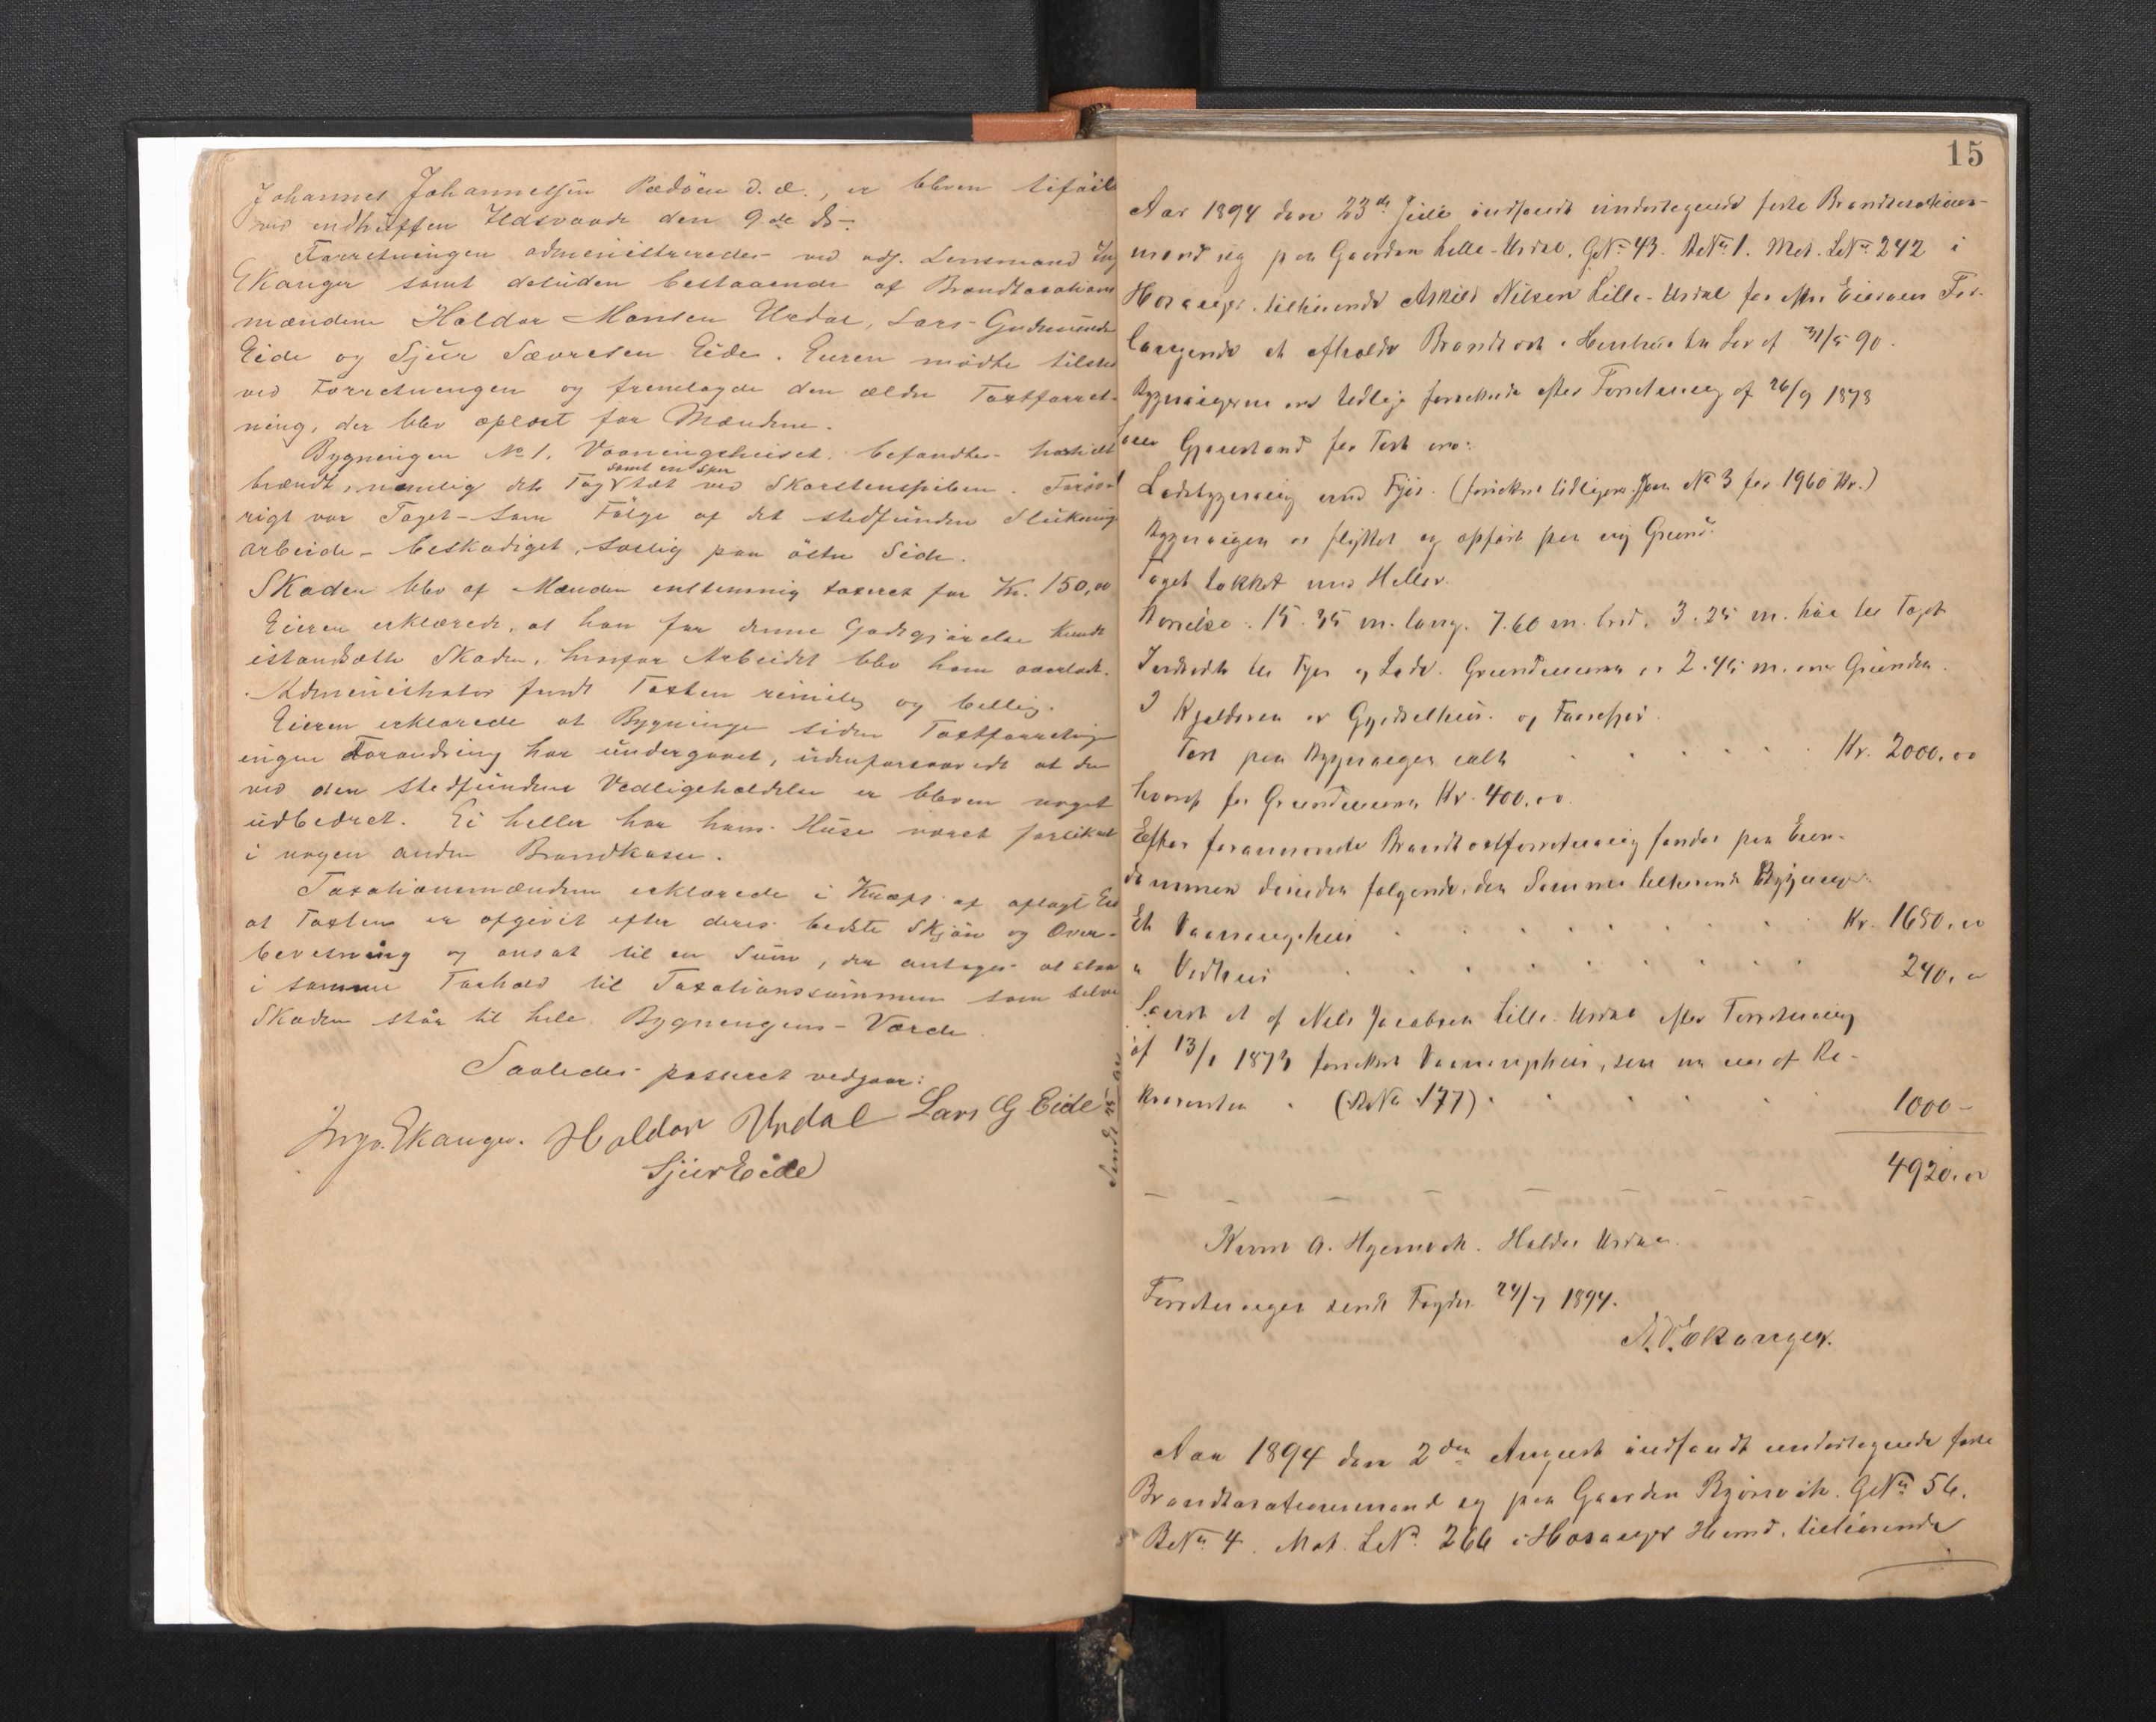 Johannes Johannessen Padöen d. æ., er bleven tiföiet
ved indtruffen Ildsvaade den 9de ds.
Forretningen administreredes ved adj. Lensmand Ing
Ekanger samt desuden bestaaende af Brandtaxations
mændene Haldor Monsen Urdal, Lars Gudmunds
Eide og Sjur Sævresen Eide. Eieren mødte tilstede
ved Forretningen og fremlagde den ældre Taxtforret-
ning, der blev oplæst for Mændene.
Bygningen No 1, Vaaningshuset, befandtes
samt en Sper
brændt, nemlig dets Tag tæt ved Skorstenspiben. Forøv
rigt var Taget som Følge af det stedfundne Sluknings
arbeide beskadiget, særlig paa østre Side.
Skaden blev af Mændene enstemmig taxeret for Kr. 150,00
Eieren erklærede, at han for denne Godtgjørelse kunde
istandsætte Skaden, hvorfor Arbeidet blev ham overladt.
Administrator fandt Taxten rimelig og billig.
Eieren erklærede at Bygninge siden Taxtforretn
ingen Forandring har undergaaet, uden forsaavidt at de
ved den stedfundne Vedligeholdelse er bleven noget
udbedret. Ei heller har hans Huse været forsikret
i nogen anden Brandkasse.
Taxationsmændene erklærede i Kraft af aflagt Eed
at Taxten er afgivet efter deres bedste Skjøn og Over-
bevisning og ansat til en Sum, der antages at staa
i samme Forhold til Taxationssummen som selve
Skaden står til hele Bygningens Værdi.
Saaledes passeret vedgaar:
Ingv. Ekanger. Haldor Urdal Lars G Eide
Sjur Eide
15
Aar 1894 den 23de Juli indfandt undertegnede faste Brandtaxations-
mænd sig paa Gaarden Lille-Urdal, GNo 43. BNo 1. Mat. LNo 242 i
Hosanger, tilhørende Askild Nilsen Lille-Urdal for efter Eierens For-
langende at afholde Brandtaxt i Henhold til Lov af 31/5 90.
Bygningerne ere tidligere forsikrede efter Forretning af 26/9 1878
Gjenstand for Taxt ere:
Ladebygning med Fjøs. (forsikret tidligere No 3 for 1960 Kr.)
Bygningen er flyttet og opført paa ny Grund.
Taget tækket med Heller.
Størrelse: 15.35 m. lang, 7.60 m. bred, 3.25 m. høi til Taget
Indredet til Fjøs og Lade. Grundmuren er 2.45 m. over Grunden.
I Kjælderen er Gjødselhus og Faarefjøs.
Taxt paa Bygningen ialt Kr. 2000,00
hvoraf for Grundmuren Kr. 400,00.
Efter foranævnte Brandtaxtforretning fandes paa Eien-
dommen desuden følgende, den Samme tilhørende Bygninger
Et Vaaningshus Kr. 1680,00
" Vedhus 240,00
Samt et af Nils Jacobsen Lille-Urdal efter Forretning
af 13/1 1873 forsikret Vaaningshus, som nu eies af Re-
kvirenten (BNo 177) 1000-
4920,00
Knut A. Hjelmvik. Haldor Urdal.
Forretningen sendt Fogden 24/7 1894.
A. V. Ekanger.
Aar 1894 den 2den August indfandt undertegnede faste
Brandtaxationsmænd sig paa Gaarden Bjørsvik, GNo 56,
BNo 4. Mat. LNo 266 i Hosanger Herred, tilhørende